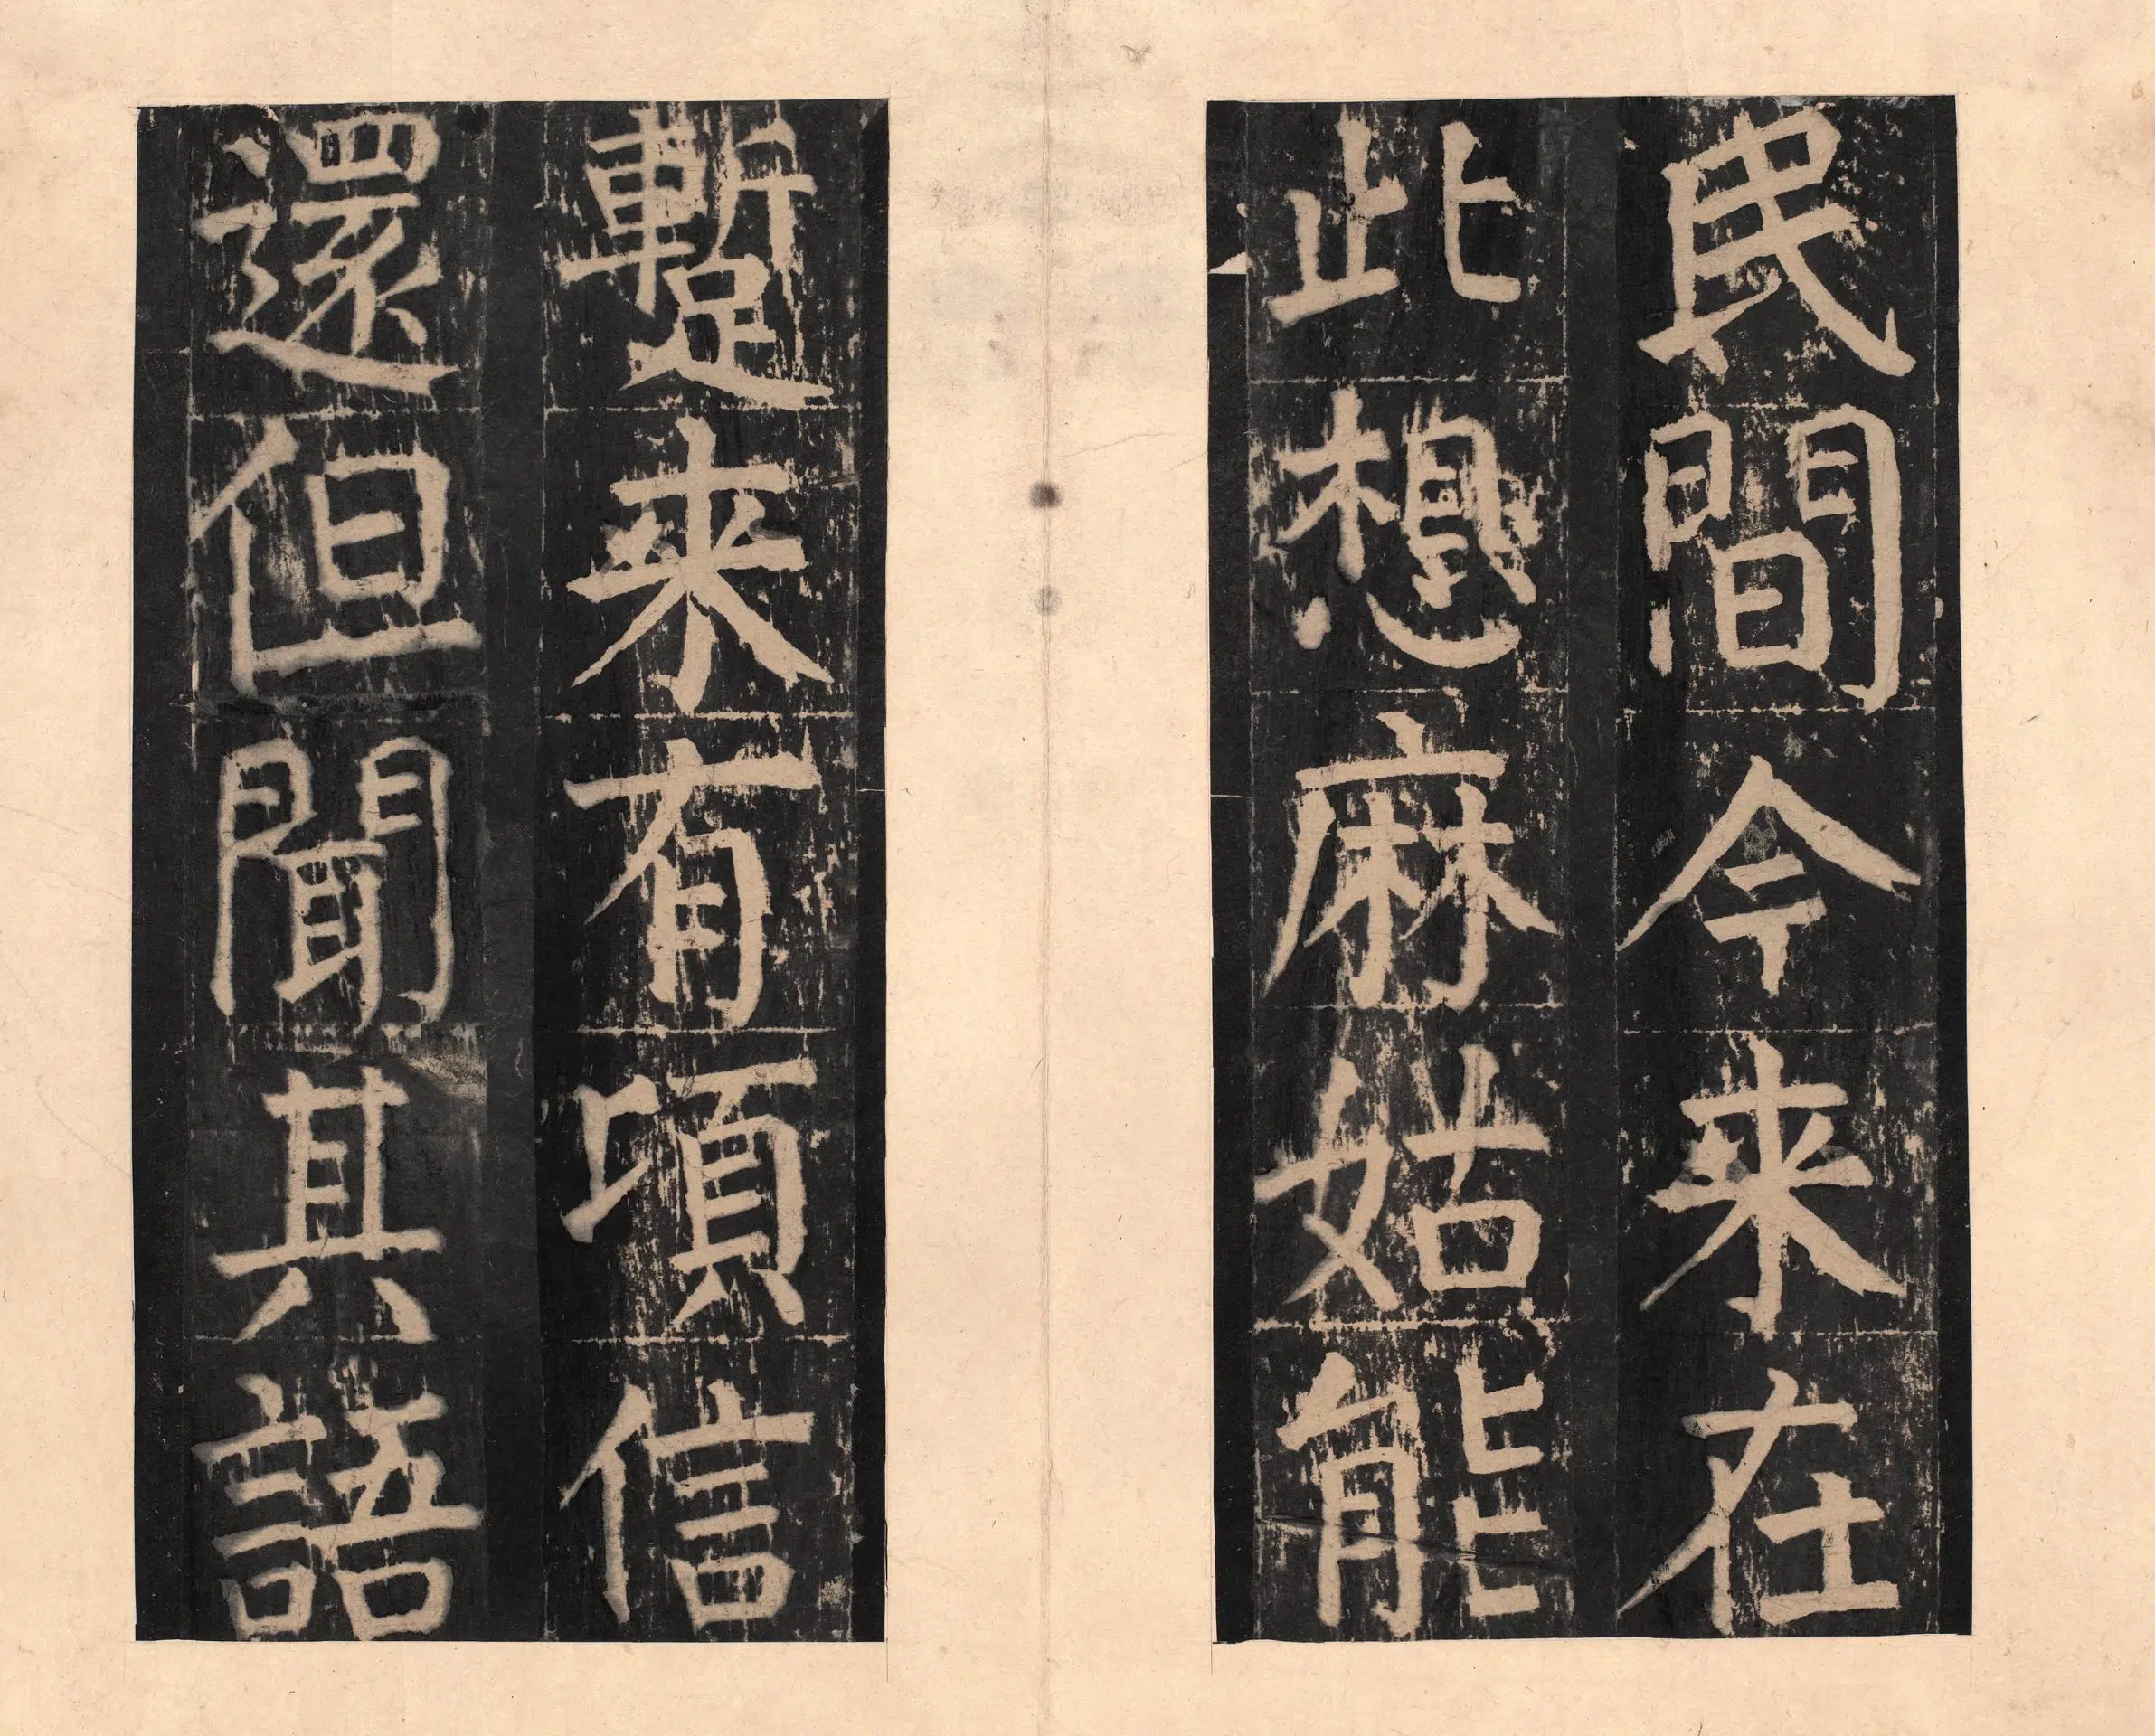 民間今来在
此想麻姑能
蹔来有頃信
還但聞其語